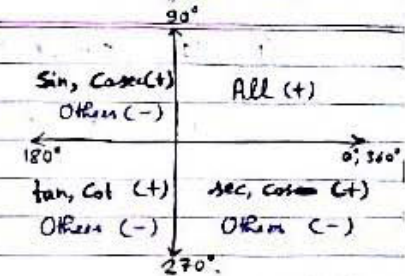 90°
Sin, Cosec(+)
Others (-)
All (+)
180°
0°, 360°
tan, Cot (+)
Others (-)
sec, cos (+)
Others (-)
270°.